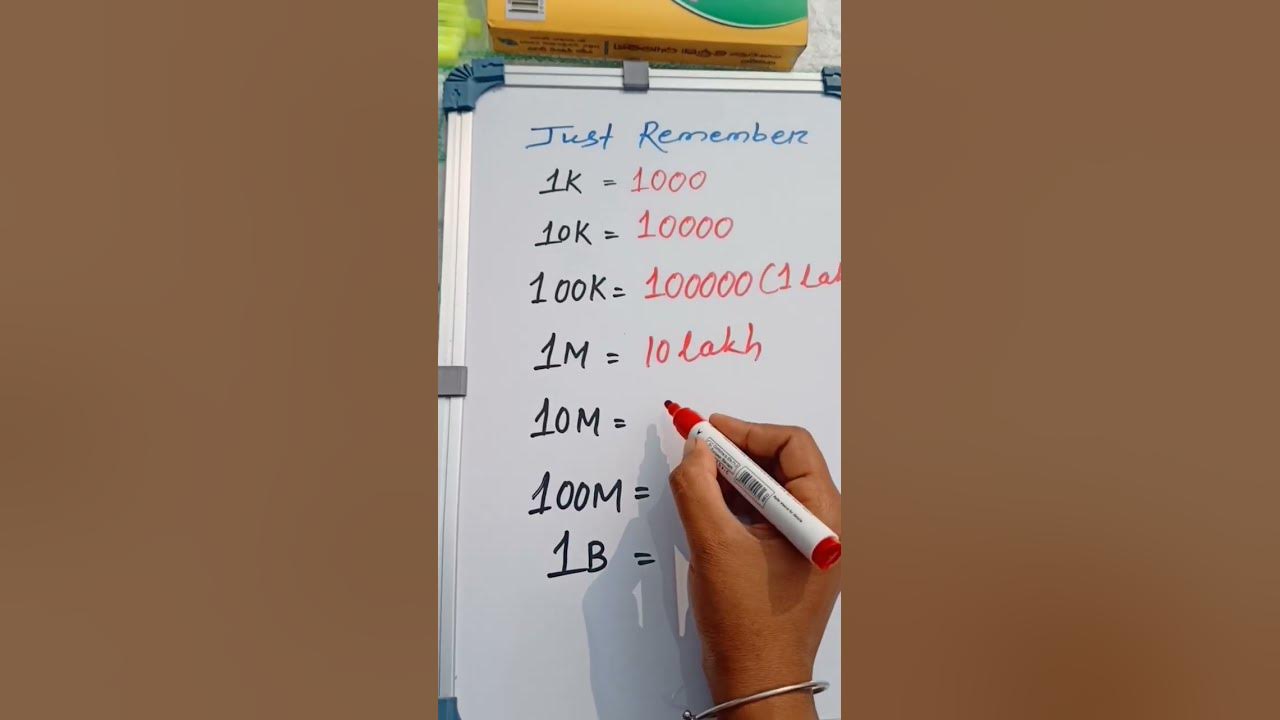 Just Remember
1K = 1000
10K = 10000
100K = 100000 (1 Lak
1M = 10 lakh
10M =
100M =
1B =